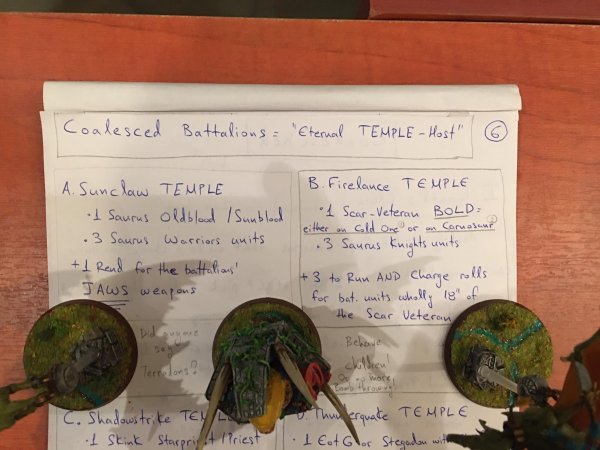 Coalesced Battalions = "Eternal TEMPLE-Host" 6
A. Sunclaw TEMPLE
• 1 Saurus Oldblood / Sunblood
• 3 Saurus Warriors units
+ 1 Rend for the battalions'
JAWS weapons
B. Firelance TEMPLE
• 1 Scar-Veteran BOLD =
either on Cold One① or on Carnosaur②
• 3 Saurus Knights units
+ 3 to Run AND Charge rolls
for bat. units wholly 18" of
the Scar Veteran
Did anyone
say
Terrodons?
Behave
children!
no more
bomb throwing!
C. Shadowstrike TEMPL
• 1 Skink /Priest
TEMPLE
• 1 EotG or Stegadon with